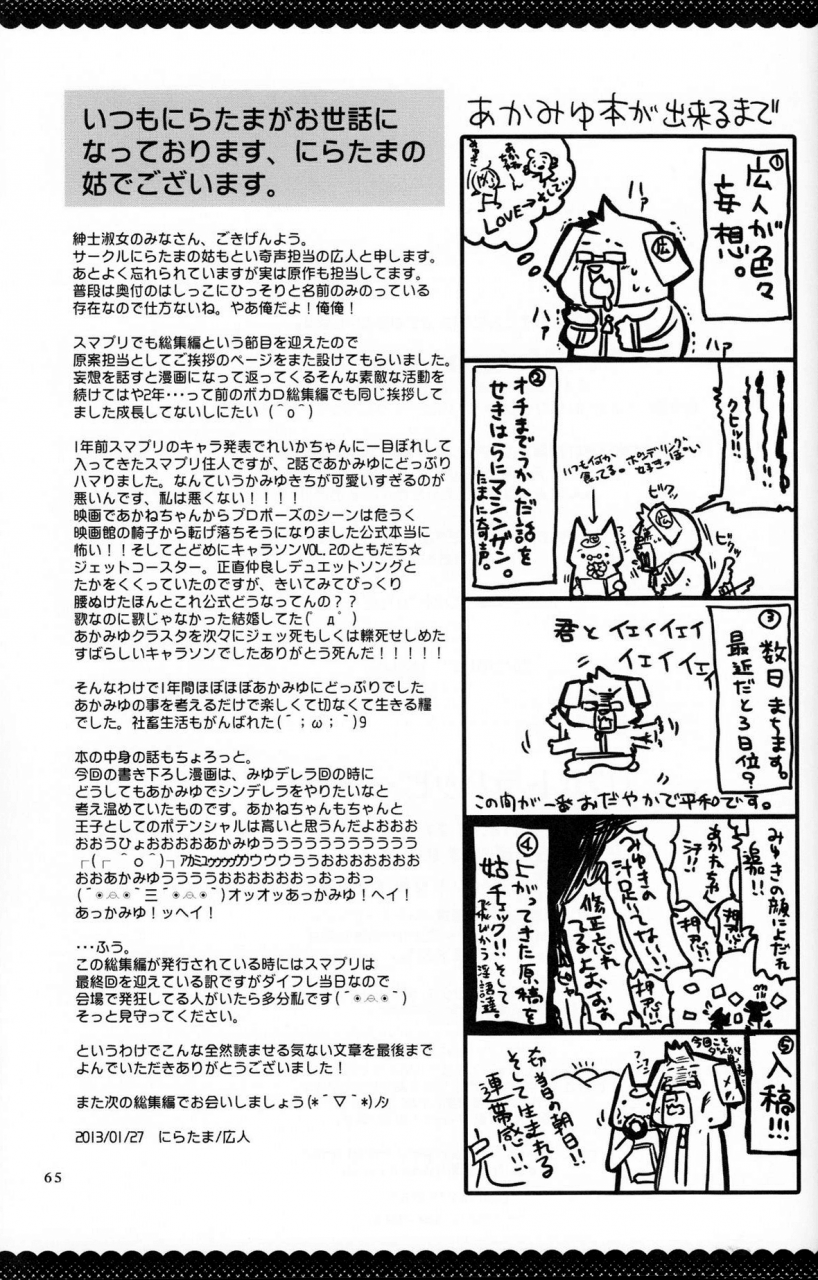 いつもにらたまがお世話に
なっております、にらたまの
姑でございます。
紳士淑女のみなさん、ごきげんよう。
サークルにらたまの姑もとい奇声担当の広人と申します。
あとよく忘れられていますが実は原作も担当してます。
普段は奥付のはしっこにひっそりと名前のみのっている
存在なので仕方ないね。やあ俺だよ！俺俺！
スマプリでも総集編という節目を迎えたので
原案担当としてご挨拶のページをまた設けてもらいました。
妄想を話すと漫画になって返ってくるそんな素敵な活動を
続けてはや2年･･･って前のボカロ総集編でも同じ挨拶して
ました成長してないしにたい（＾o＾）
1年前スマプリのキャラ発表でれいかちゃんに一目ぼれして
入ってきたスマプリ住人ですが、2話であかみゆにどっぷり
ハマりました。なんていうかみゆきちが可愛いすぎるのが
悪いんです、私は悪くない！！！！
映画であかねちゃんからプロポーズのシーンは危うく
映画館の椅子から転げ落ちそうになりました公式本当に
怖い！！そしてとどめにキャラソンVOL.2のともだち☆
ジェットコースター。正直仲良しデュエットソングと
たかをくくっていたのですが、きいてみてびっくり
腰ぬけたほんとこれ公式どうなってんの？？
歌なのに歌じゃなかった結婚してた(ﾟдﾟ)
あかみゆクラスタを次々にジェッ死もしくは轢死せしめた
すばらしいキャラソンでしたありがとう死んだ！！！！！
そんなわけで1年間ほぼほぼあかみゆにどっぷりでした
あかみゆの事を考えるだけで楽しくて切なくて生きる糧
でした。社畜生活もがんばれた(´；ω；｀)9
本の中身の話もちょろっと。
今回の書き下ろし漫画は、みゆデレラ回の時に
どうしてもあかみゆでシンデレラをやりたいなと
考え温めていたものです。あかねちゃんもちゃんと
王子としてのポテンシャルは高いと思うんだよおおお
おおうひょおおおおあかみゆうううううううううううう
┌(┌ ＾o＾)┐ｱｶﾐﾕｩｩｩｩｩｩｩウウウううおおおおおおおお
おおあかみゆううううおおおおおおっおっおっ
(´◉◞౪◟◉｀三´◉◞౪◟◉｀)オッオッあっかみゆ！ヘイ！
あっかみゆ！ッヘイ！
･･･ふう。
この総集編が発行されている時にはスマプリは
最終回を迎えている訳ですがダイフレ当日なので
会場で発狂してる人がいたら多分私です(´◉◞౪◟◉｀)
そっと見守ってください。
というわけでこんな全然読ませる気ない文章を最後まで
よんでいただきありがとうございました！
また次の総集編でお会いしましょう(*´▽｀*)ﾉｼ
2013/01/27　にらたま/広人
65
あかみゆ本が出来るまで
①
広人が色々
妄想。
あかねちゃん
みゆき
LOVE→そして…
広
ハァ
ハァ
ハァ
②
オチまでうかんだ話を
せきはらにマシンガン。
たまに奇声。
クヒッ!!
いつも何か
食ってる。ポンデリングが
好きっぽい
フンフン
広
ビクッ
ビクッ
③
数日まちます。
最近だと3日位？
君とイェイイェイ
イェイイェイ
この間が一番おだやかで平和です。
④
上がってきた原稿を
姑チェック!!そして
とびかう淫語達。
みゆきの顔によだれ
追加!!!
あかねちゃん
みゆきの
汁足りてない!!
修正忘れ
てるよおおお
押忍!
押忍!
⑤
入稿!!!
今回こそ
フンフン
当日の朝日!!
そして生まれる
連帯感!!!
完